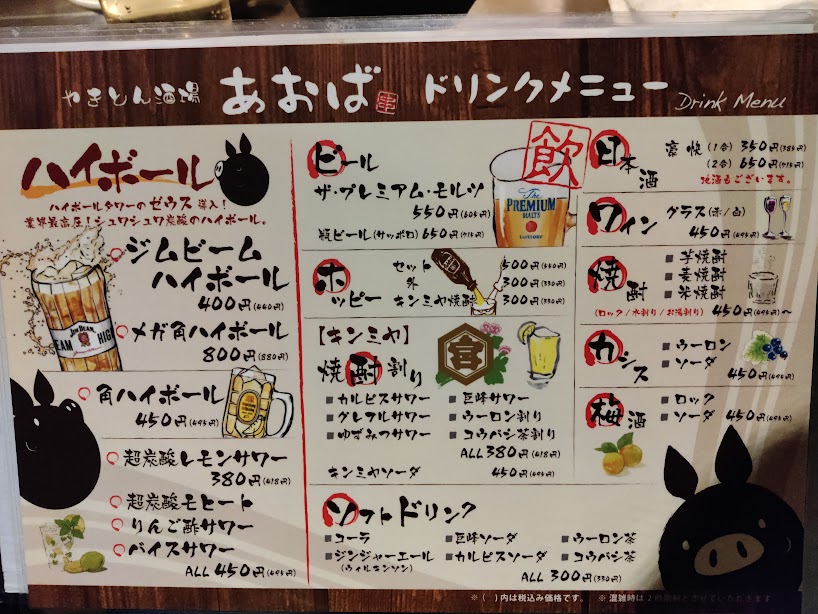 やきとん酒場 あおば 串 ドリンクメニュー Drink Menu
ハイボール
ハイボールタワーのゼウス導入!
業界最高圧!シュワシュワ炭酸のハイボール。
ジムビーム
ハイボール
400円(440円)
JIM BEAM
メガ角ハイボール
800円(880円)
角ハイボール
450円(495円)
超炭酸レモンサワー
380円(418円)
超炭酸モヒート
りんご酢サワー
バイスサワー
ALL 450円(495円)
飲
ビール
ザ・プレミアム・モルツ
550円(605円)
瓶ビール(サッポロ) 650円(715円)
The
PREMIUM
MALT'S
SUNTORY
ホッピー
セット 500円(550円)
外 300円(330円)
キンミヤ焼酎 300円(330円)
【キンミヤ】
焼酎割り
宮
■カルピスサワー ■巨峰サワー
■グレフルサワー ■ウーロン割り
■ゆずみつサワー ■コウバシ茶割り
ALL 380円(418円)
キンミヤソーダ 450円(495円)
ソフトドリンク
■コーラ ■巨峰ソーダ ■ウーロン茶
■ジンジャーエール ■カルピスソーダ ■コウバシ茶
(ウィルキンソン)
ALL 300円(330円)
日本酒
豪快(1合) 350円(385円)
(2合) 650円(715円)
地酒もございます。
ワイン
グラス(赤/白)
450円(495円)
焼酎
■芋焼酎
■麦焼酎
■米焼酎
(ロック/水割り/お湯割り) 450円(495円)~
カシス
■ウーロン
■ソーダ
450円(495円)
梅酒
■ロック
■ソーダ 450円(495円)
※( )内は税込み価格です。 ※混雑時は2時間制とさせていただきます